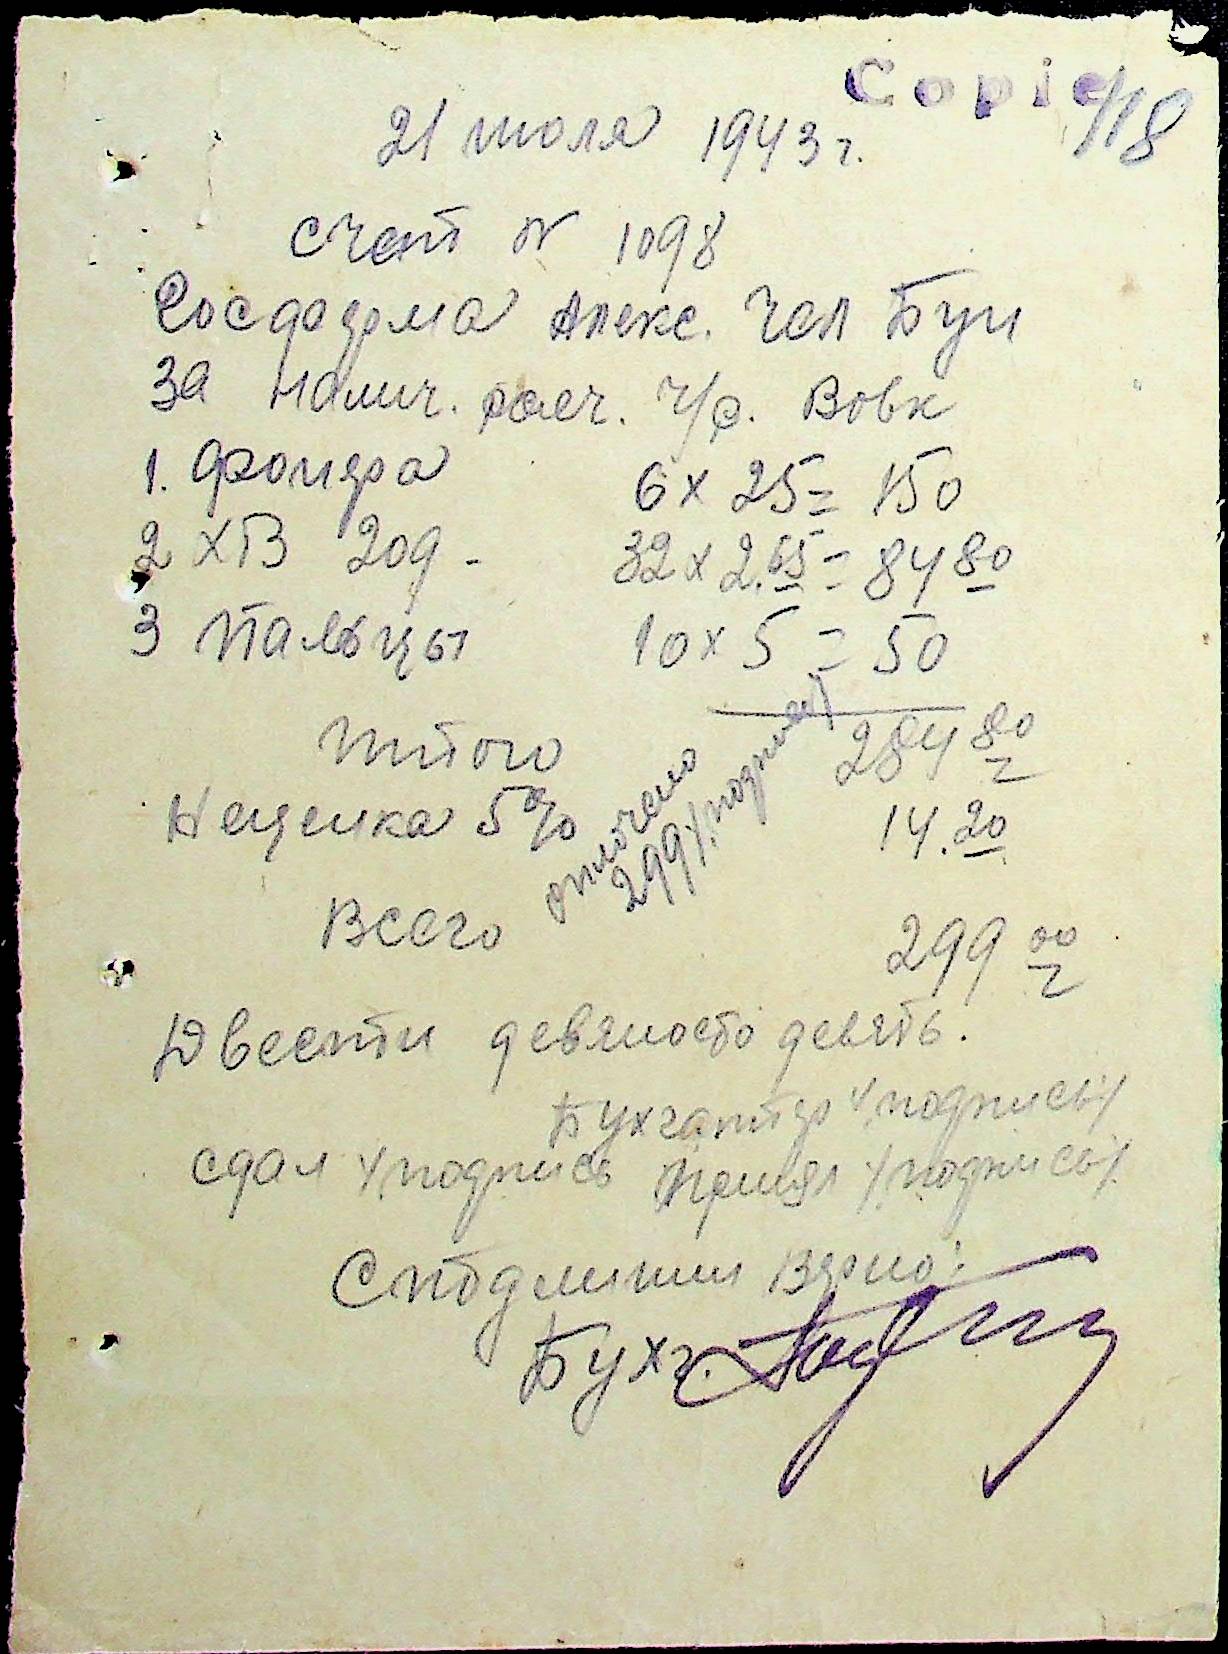 Copie
118
21 июля 1943 г.
Счет N 1098
Алекс. Бун
За налич. расч. ч/р. Вовк
1. 6 x 25 = 150
2 ХВ 20д - 32 x 2.65 = 84 80
3 Пальцы 10 x 5 = 50
Итого 284 80
Наценка 5% 14.20
оплочено
299 /подпись/
Всего 299 00
Двести девяносто девять.
Бухгалтер /подпись/
сдал /подпись Принял /подпись/
С подлиним верно:
Бухг.